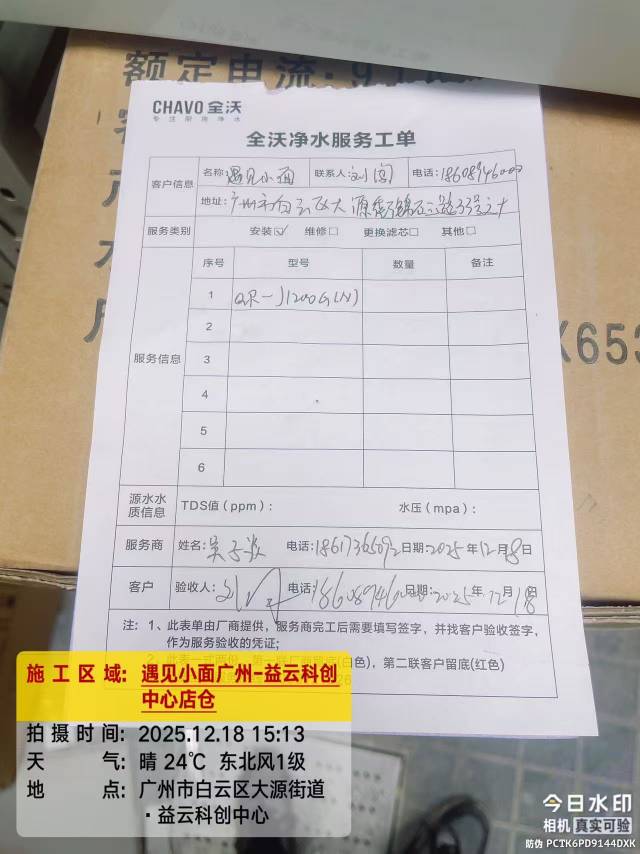 额定电流:9.
CHAVO 全沃
专注厨房净水
全沃净水服务工单
客户信息 名称: 遇见小面 联系人: 刘 电话:
地址: 广州市白云区大源
服务类别 安装☑ 维修□ 更换滤芯□ 其他□
服务信息 序号 型号 数量 备注
1
2
3
4
5
6
源水水质信息 TDS值(ppm): 水压(mpa):
服务商 姓名: 吴 电话: 18617365092 日期: 2025年12月18日
客户 验收人: 刘 电话: 日期: 2025年12月18日
注: 1、此表单由厂商提供，服务商完工后需要填写签字，并找客户验收签字，
作为服务验收的凭证;
(白色)，第二联客户留底(红色)
X653
施工区域: 遇见小面广州-益云科创
中心店仓
拍摄时间: 2025.12.18 15:13
天气: 晴 24℃ 东北风1级
地点: 广州市白云区大源街道
·益云科创中心
今日水印
相机 真实可验
防伪 PCTK6PD9144DXK